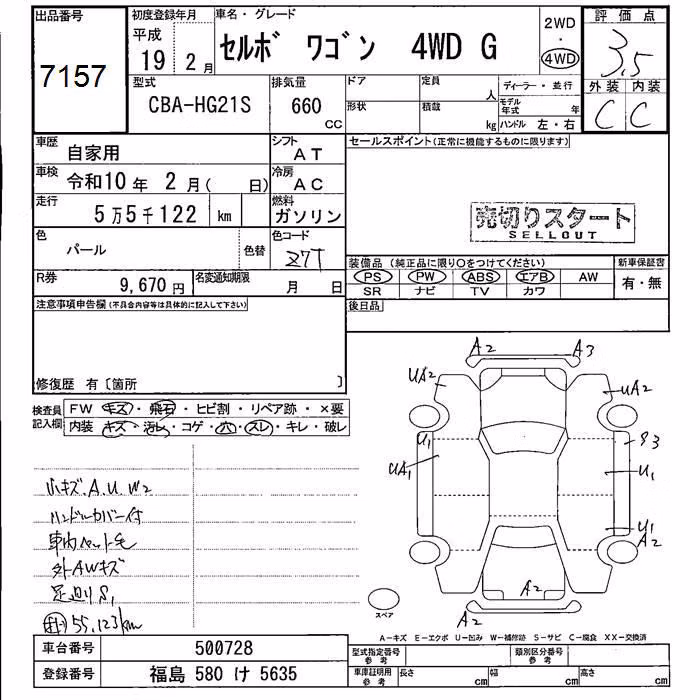 出品番号
7157
初度登録年月
平成
19 2月
車名・グレード
セルボ ワゴン 4WD G
2WD
・
4WD
評価点
3.5
外装 内装
C C
型式
CBA-HG21S
排気量
660
CC
ドア
定員
人
形状
積載
kg
ディーラー・並行
モデル年式
年
ハンドル 左・右
車歴
自家用
シフト
AT
車検
令和10年 2月( 日)
冷房
AC
走行
5万5千122 km
燃料
ガソリン
色
パール
色替
色コード
Z7T
R券
9,670円
名変通知期限
月 日
セールスポイント(正常に機能するものに限ります)
売切りスタート
SELLOUT
装備品(純正品に限り○をつけてください)
PS PW ABS エアB AW
SR ナビ TV カワ
新車保証書
有・無
後日品
注意事項申告欄(不具合内容等は具体的に記入して下さい)
修復歴 有〔箇所 〕
検査員
記入欄
FW キズ・飛石・ヒビ割・リペア跡・×要
内装 キズ・汚レ・コゲ・穴・スレ・キレ・破レ
小キズ.A.U.W2
ハンドルカバー付
車内ペット毛
外AWキズ
足廻りS1
55,123km
A2 A3
UA2 UA2
U1 S3
UA1 U1
U1
A2
A2
A2
スペア
A-キズ E-エクボ U-凹み W-補修跡 S-サビ C-腐食 XX-交換済
車台番号
500728
登録番号
福島 580 け 5635
型式指定番号
参考
類別区分番号
参考
車庫証明用
参考
長さ cm
幅 cm
高さ cm